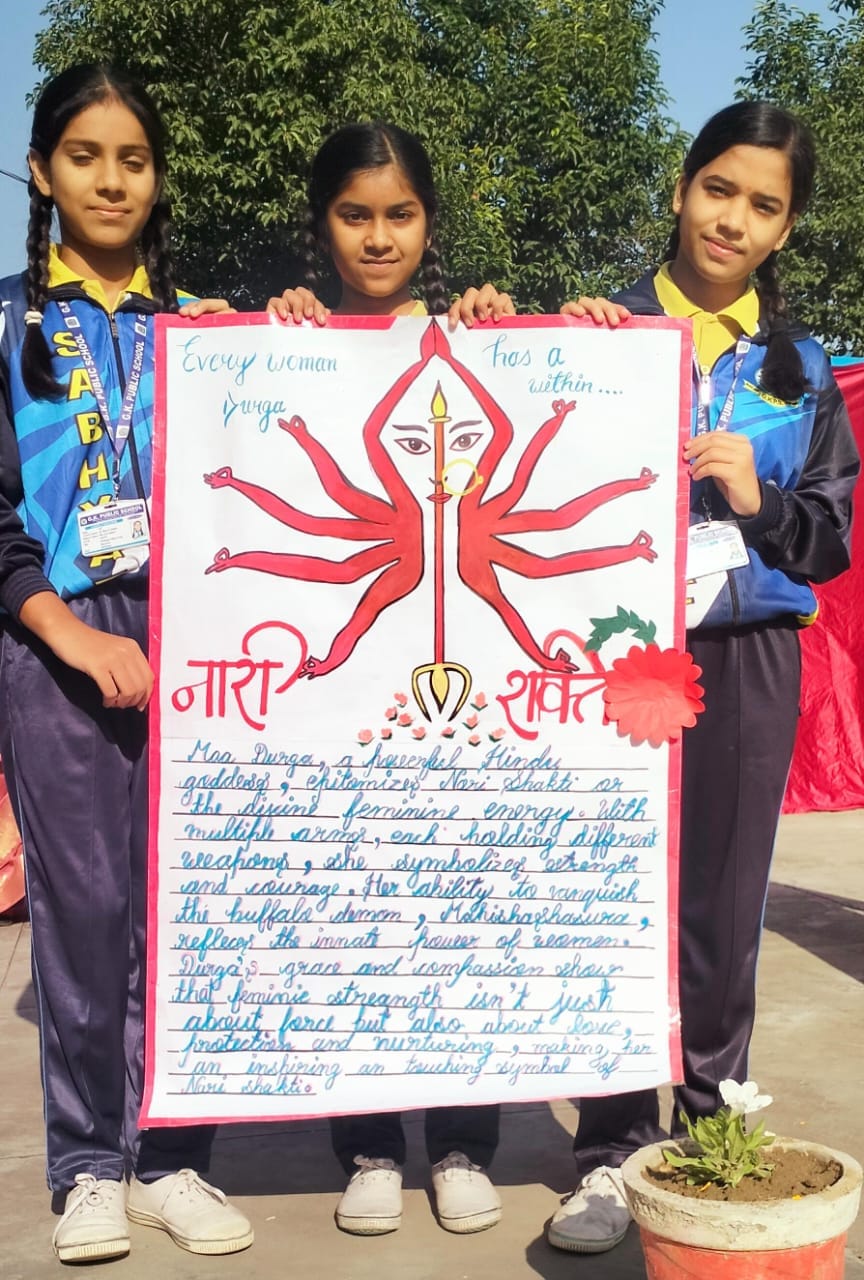 Every woman has a
Durga within....
नारी शक्ति
Maa Durga, a powerful Hindu
goddess, epitomizes Nari Shakti or
the divine feminine energy. With
multiple arms, each holding different
weapons, she symbolizes strength
and courage. Her ability to vanquish
the buffalo demon, Mahishashasura,
reflecs the innate power of women.
Durga's grace and compassion show
that feminie streangth isn't just
about force but also about love,
protection and nurturing, making her
an inspiring an touching symbol of
Nari shakti.
SABHYA
G.K. PUBLIC SCHOOL
G.K. PUBLIC SCHOOL
G.K. PUBLIC SCHOOL